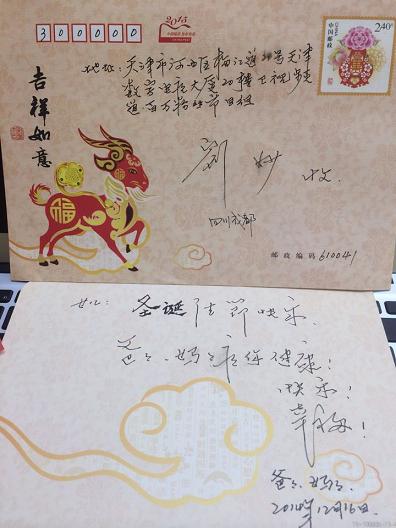 2015
300000
2.40元
中国邮政
吉祥如意
地址：天津市河西区梅江道20号天津
数字电视大厦20楼卫视步步
福
刘 妙 收
四川成都
邮政编码 610041
女儿：圣诞佳节快乐
爸爸、妈妈祝你健康！
快乐！
幸福！
爸爸、妈妈
2014年12月16日